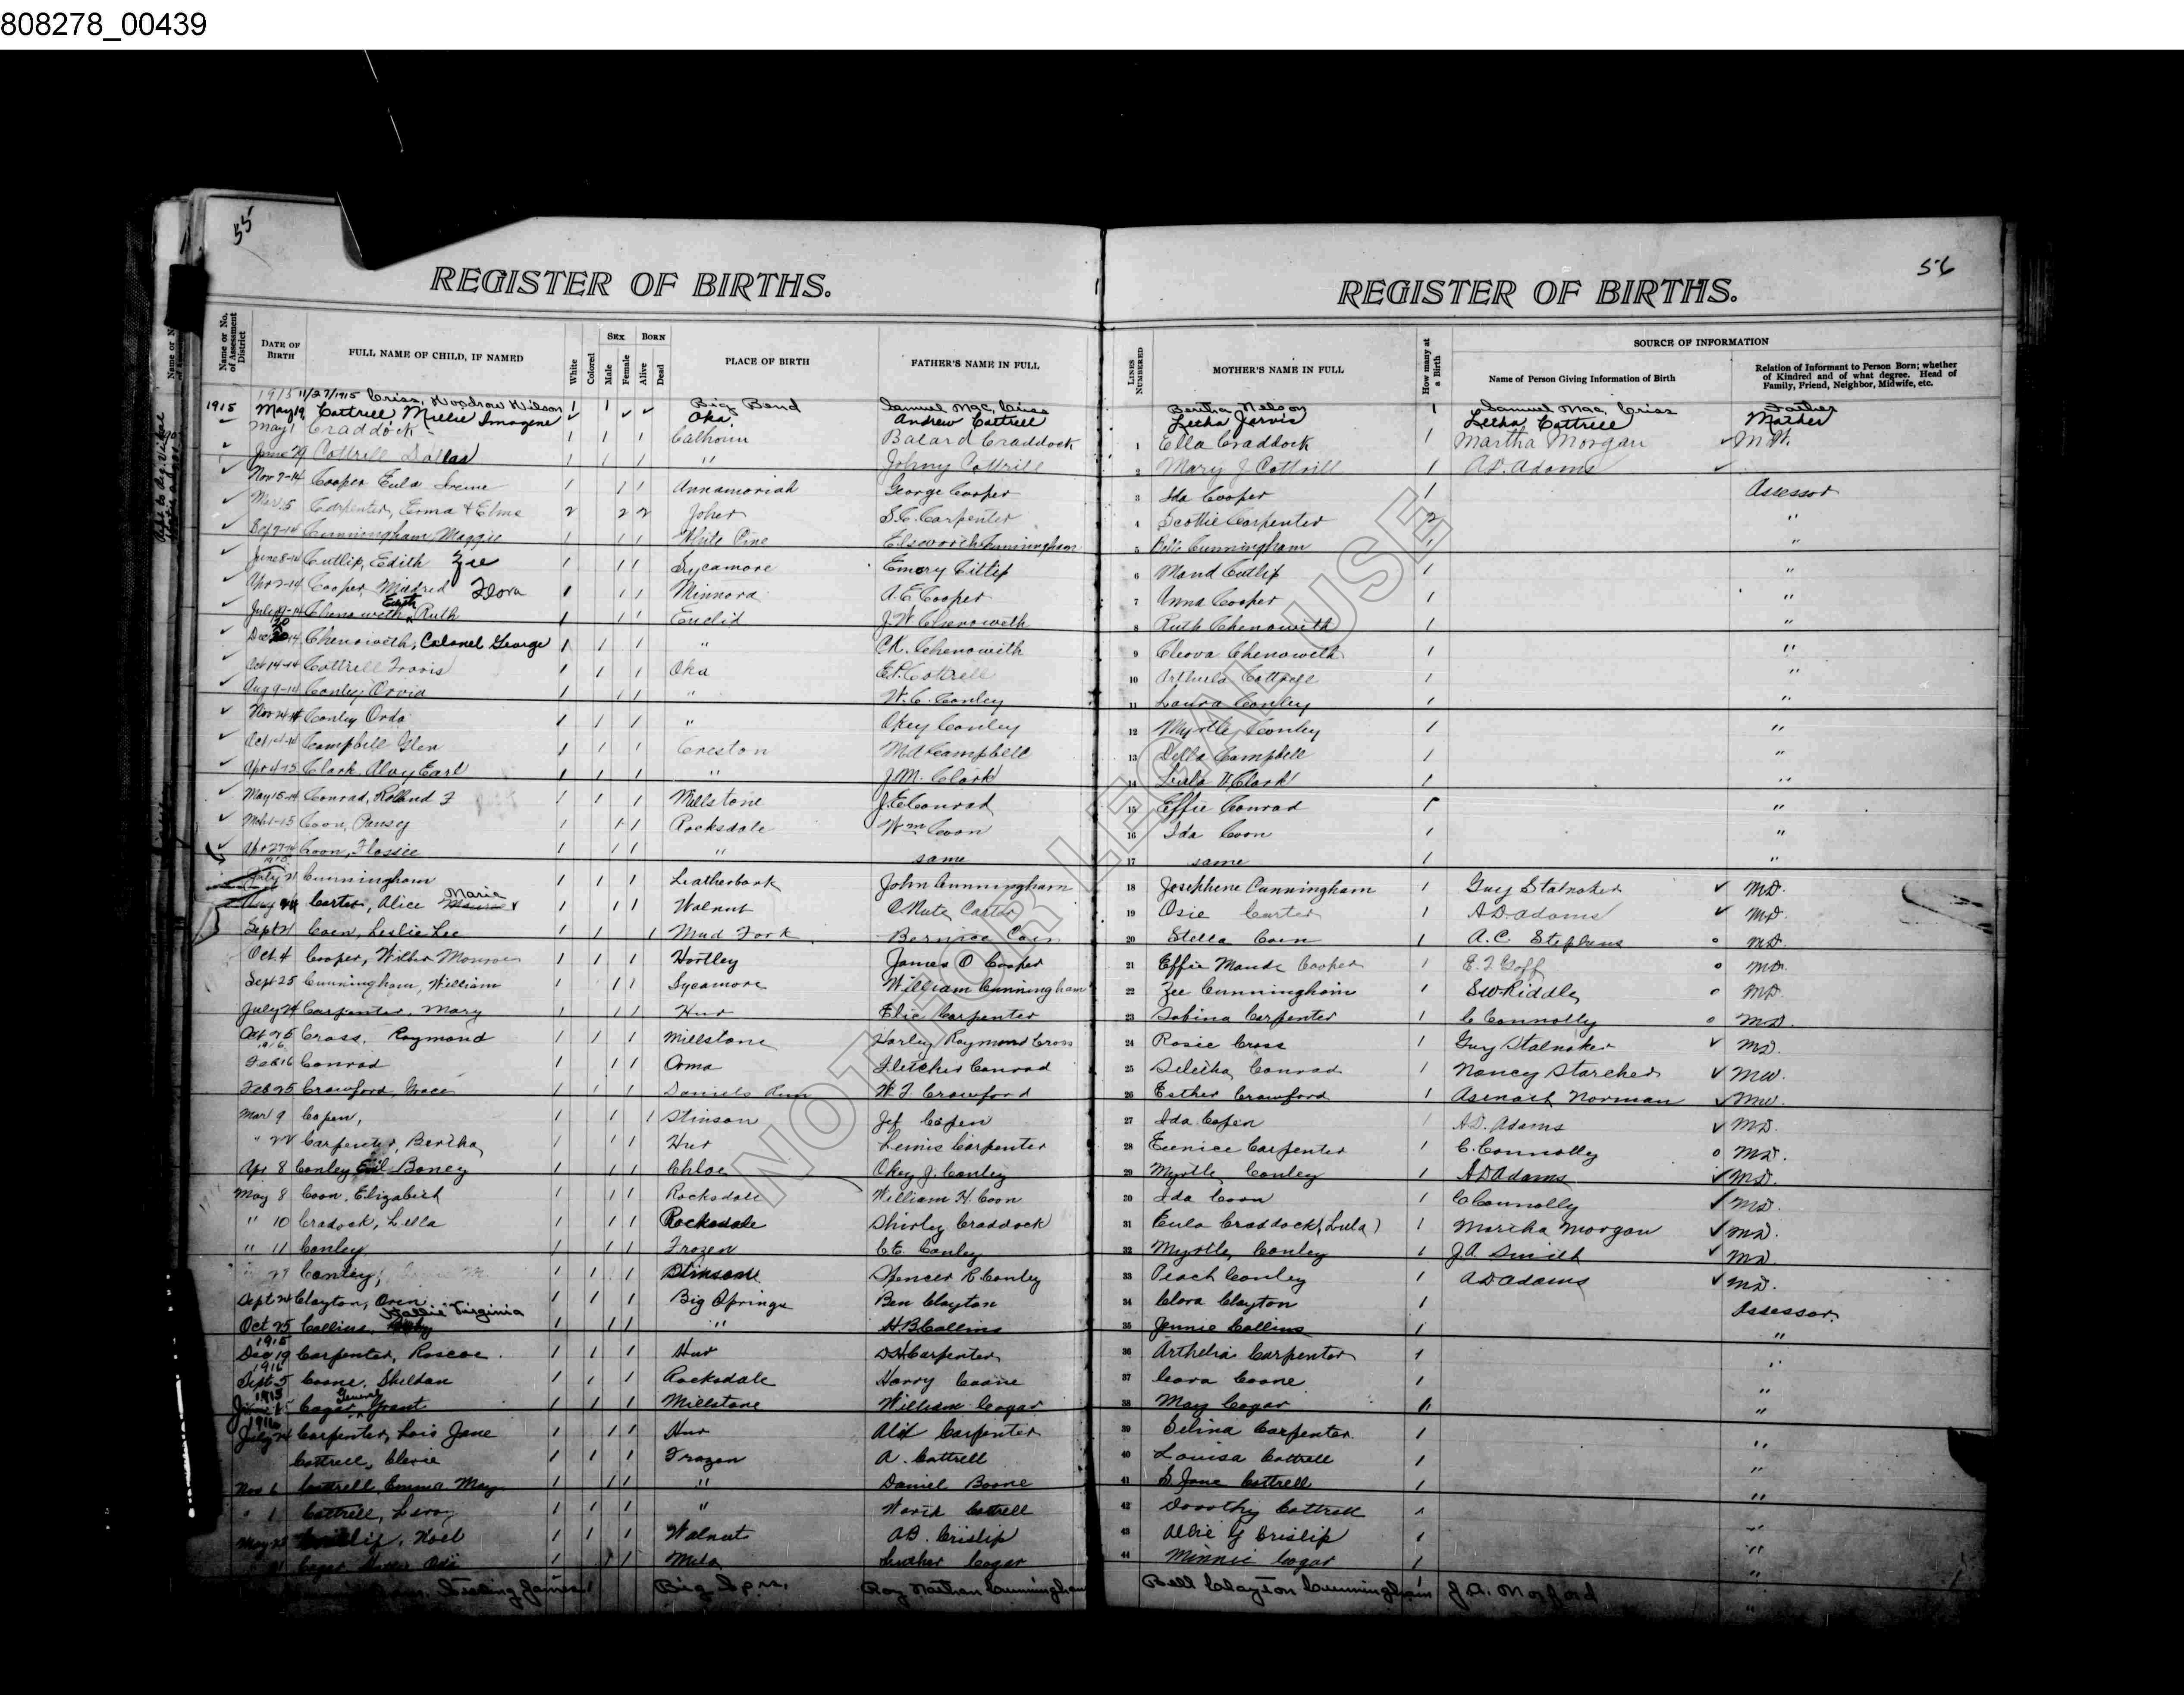 808278_00439
55
56
REGISTER OF BIRTHS.
REGISTER OF BIRTHS.
Name or No. of Assessment District
DATE OF BIRTH
FULL NAME OF CHILD, IF NAMED
White
Colored
SEX
Male
Female
BORN
Alive
Dead
PLACE OF BIRTH
FATHER'S NAME IN FULL
LINES NUMBERED
MOTHER'S NAME IN FULL
How many at a Birth
SOURCE OF INFORMATION
Name of Person Giving Information of Birth
Relation of Informant to Person Born; whether of Kindred and of what degree. Head of Family, Friend, Neighbor, Midwife, etc.
1915 11/27/1915 Criss, Woodrow Wilson 1 1 Big Bend Samuel Mac. Criss Bertha Nelson 1 Samuel Mac. Criss Father
1915 May 19 Cottrell Millie Imogene ✓ ✓ ✓ Oka Andrew Cottrell Lecha Jarvis Lecha Cottrell Mother
May 1 Craddock 1 1 1 Calhoun Balard Craddock 1 Ella Craddock 1 Martha Morgan ✓
June 29 Cottrill Dallas 1 1 1 " Johny Cottrill 2 Mary J Cottrill 1 A.D. Adams ✓
Nov 7-14 Cooper Eula Irene 1 1 1 Annamoriah George Cooper 3 Ida Cooper 1 Assessor
Carpenter, Erma & Elma 2 2 2 Joker S.C. Carpenter 4 Scottie Carpenter 2 "
Cunningham Maggie 1 1 1 White Pine Elsworth Cunningham 5 Belle Cunningham 1 "
June 8-14 Cutlip, Edith Zee 1 1 1 Sycamore Emory Cutlip 6 Maud Cutlip 1 "
Apr 2-14 Cooper Mildred Flora 1 1 1 Minnora A.E. Cooper 7 Anna Cooper 1 "
Chenoweth, Ruth 1 1 1 Euclid J.W. Chenoweth 8 Ruth Chenowith 1 "
Chenowith, Colonel George 1 1 1 " C.R. Chenowith 9 Cleova Chenoweth 1 "
Oct 14-14 Cottrell Travis 1 1 1 Oka E.P. Cottrell 10 1 "
Aug 9-14 Conley, Orvia 1 1 1 " W.C. Conley 11 Laura Conley 1 "
Nov 24-14 Conley Orda 1 1 1 " Okey Conley 12 Myrtle Conley 1 "
Campbell Glen 1 1 1 Creston M.A. Campbell 13 Della Campbell 1 "
Apr 4-15 Clark, Alvy Earl 1 1 1 " J.M. Clark 14 Clark 1 "
May 15-14 Conrad, Rolland F 1 1 1 Millstone J.E. Conrad 15 Effie Conrad 1 "
Coon, Pansey 1 1 1 Rocksdale Wm Coon 16 Ida Coon 1 "
Apr 27-14 Coon, Flossie 1 1 1 " same 17 same 1 "
July 21 Cunningham 1 1 1 Leatherbark John Cunningham 18 Josephene Cunningham 1 Guy Stalnaker ✓ M.D.
Carter, Alice Marie 1 1 1 Walnut Carter 19 Osie Carter 1 A.D. Adams ✓ M.D.
Sept 21 Coen, Leslie Lee 1 1 1 Mud Fork Bernice Coen 20 Stella Coen 1 A.C. Stephens o M.D.
Oct. 4 Cooper, Wilber Monroe 1 1 1 Hartley James O Cooper 21 Effie Maude Cooper 1 E.T. Goff o M.D.
Sept 25 Cunningham, William 1 1 1 Sycamore William Cunningham 22 Zee Cunningham 1 S W Riddle o M.D.
July 24 Carpenter, Mary 1 1 1 Hur Carpenter 23 Sabina Carpenter 1 C Connolly o M.D.
Oct 25 Cross, Raymond 1 1 1 Millstone Harley Raymond Cross 24 Rosie Cross 1 Guy Stalnaker ✓ M.D.
1916
Feb 16 Conrad 1 1 1 Orma Fletcher Conrad 25 Conrad 1 Nancy Starcher ✓ M.W.
Feb 25 Crawford, Grace 1 1 1 Daniels Run W. T. Crawford 26 Esther Crawford 1 Asenath Norman ✓ M.W.
Mar 9 Copen, 1 1 1 Stinson Jef Copen 27 Ida Copen 1 A.D. Adams ✓ M.D.
" 22 Carpenter, Bertha 1 1 1 Hur Carpenter 28 Eunice Carpenter 1 C. Connolly o M.D.
Apr 8 Conley Boney 1 1 1 Chloe Okey J. Conley 29 Myrtle Conley 1 A D Adams ✓ M.D.
May 8 Coon, Elizabeth 1 1 1 Rocksdale William H. Coon 30 Ida Coon 1 C Connolly ✓ M.D.
" 10 Cradock, Lella 1 1 1 Rocksdale Shirley Craddock 31 Eula Craddock (Lula) 1 Martha Morgan ✓ M.D.
" 11 Conley 1 1 1 Frozen C.E. Conley 32 Myrtle, Conley 1 J.A. Smith ✓ M.D.
Conley, 1 1 1 Stinson Spencer R Conley 33 Peach Conley 1 A D Adams ✓ M.D.
Sept 24 Clayton, Oren 1 1 1 Big Springs Ben Clayton 34 Clara Clayton 1 Assessor
Oct 25 Collins, Hallie Virginia 1 1 1 " H.B. Collins 35 Jennie Collins 1 "
1915
Dec 19 Carpenter, Roscoe 1 1 1 Hur Carpenter 36 Arthelia Carpenter 1 "
1916
Sept 5 Coone, Sheldon 1 1 1 Rocksdale Harry Coone 37 Cora Coone 1 "
1915
Cogar, General Grant 1 1 1 Millstone William Cogar 38 May Cogar 1 "
1916
July 24 Carpenter, Lois Jane 1 1 1 Hur Carpenter 39 Selina Carpenter 1 "
Cottrell, Clevie 1 1 1 Frozen A. Cottrell 40 Louisa Cottrell 1 "
Nov 6 Cottrell, Emma May 1 1 1 " Daniel Boone 41 Jane Cottrell 1 "
" 1 Cottrell, Leroy 1 1 1 " Cottrell 42 Dorothy Cottrell 1 "
May 23 Noel 1 1 1 Walnut A.B. Crislip 43 Allie G Crislip 1 "
Cogar 1 1 Luther Cogar 44 Minnie Cogar 1 "
James Big Spr. Roy Nathan Cunningham Bell Clayton Cunningham J.A. Morford "
NOT FOR LEGAL USE